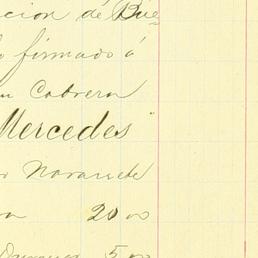 cion de Bue
firmado á
Cabrera
Mercedes"
Navarrete
20 00
5 00